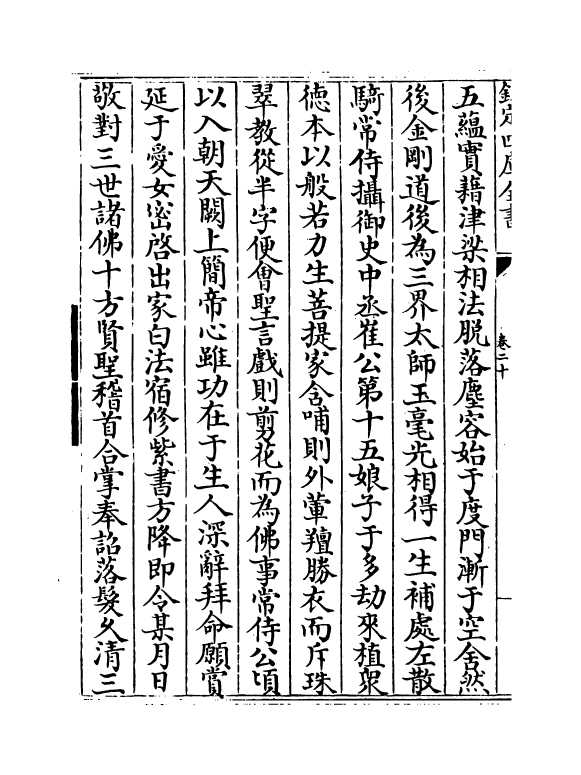 欽定四庫全書
卷二十
五蘊實藉津梁相法脫落塵容始于度門漸于空舍然
後金剛道後為三界太師玉毫光相得一生補處左散
騎常侍攝御史中丞崔公第十五娘子于多劫來植衆
徳本以般若力生菩提家含哺則外葷羶勝衣而斥珠
翠教從半字便會聖言戲則剪花而為佛事常侍公頃
以入朝天闕上簡帝心雖功在于生人深辭拜命願賞
延于愛女密啓出家白法宿修紫書方降即令某月日
敬對三世諸佛十方賢聖稽首合掌奉詔落髮久清三